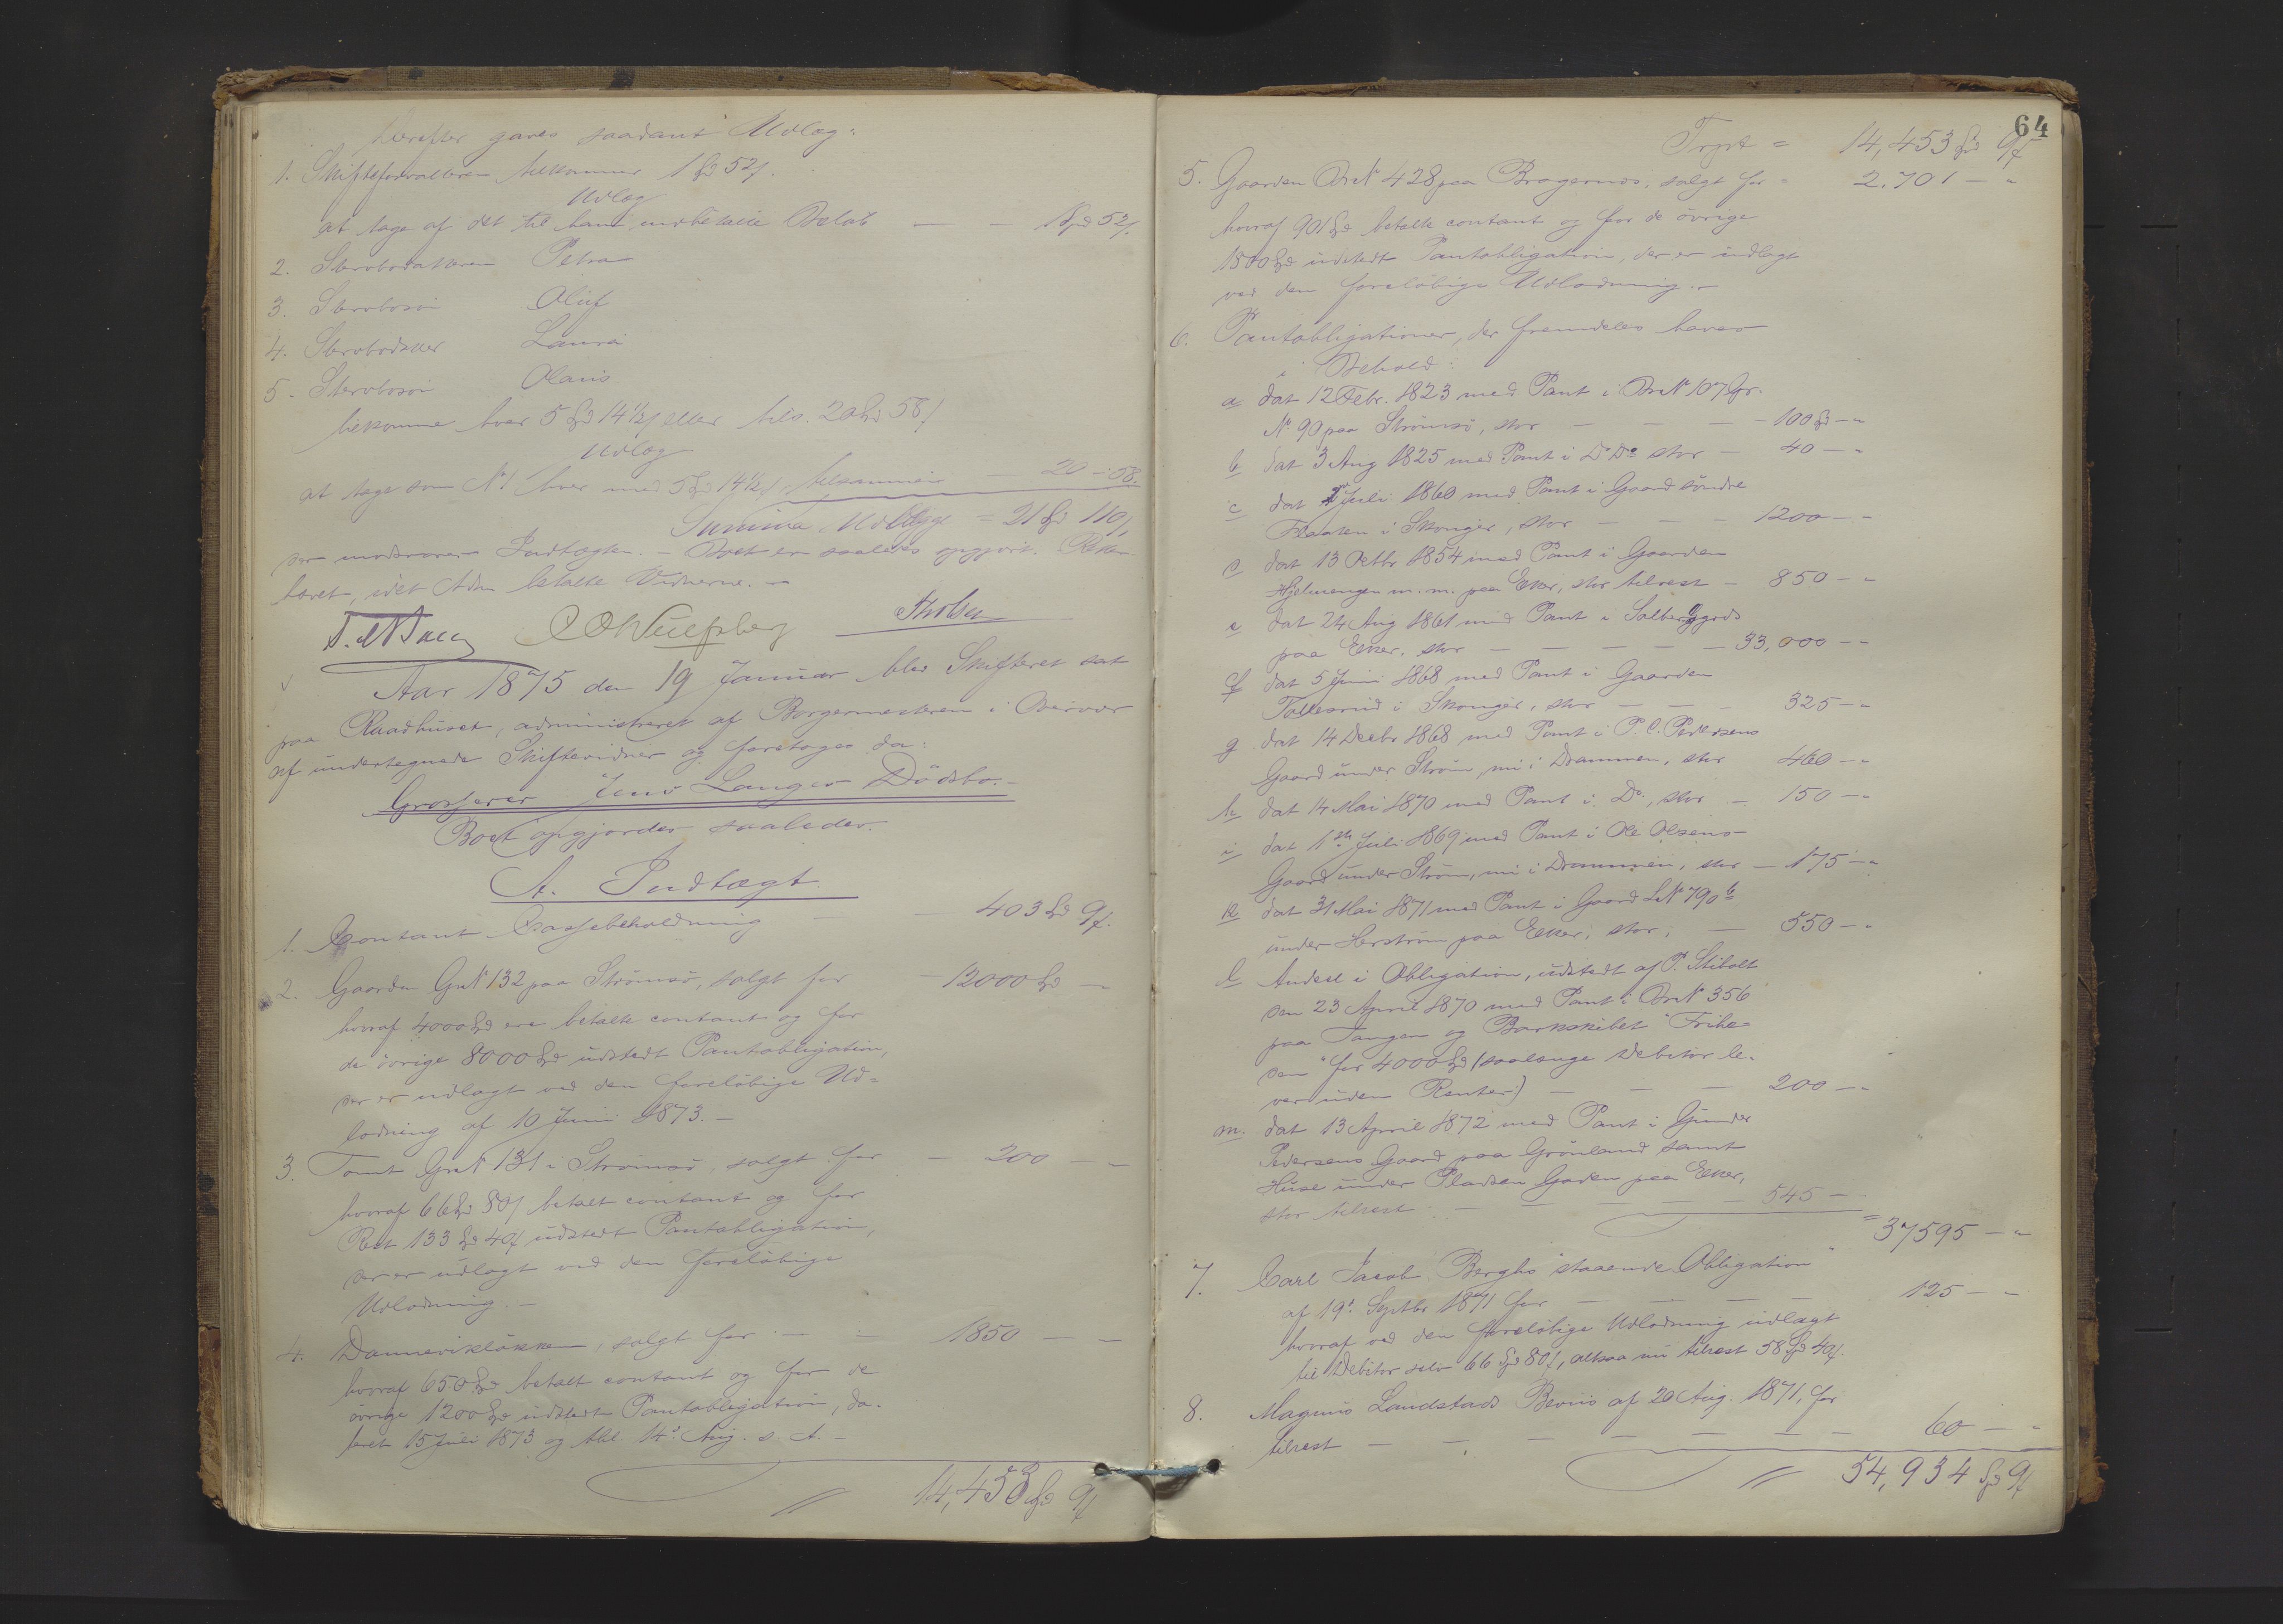 herefter gaves saadant Udlæg:
1. Skifteforvalteren tilkommer 1 Spd 52 ß.
Udlæg
at tage af det til ham indbetalte Beløb — — 1 Spd 52 ß.
2. Stervbodatteren Petra
3. Stervbosøn Oluf
4. Stervbodatter Laura
5. Stervbosøn Olaus
bekomme hver 5 Spd 14½ ß eller tils. 20 Spd 58 ß
Udlæg
at tage som No 1 hver med 5 Spd 14½ ß, tilsammen 20 – 58.
Summa Udlægge = 21 Spd 110 ß,
som modsvarer Indtægten. – Boet er saaledes opgjort.
hævet, idet Adm betalte Vidnerne. –
Aar 1875 den 19 Januar blev Skifteret sat
paa Raadhuset, administreret af Borgermesteren i Overvær
af undertegnede Skiftevidner og foretoges da:
Grosserer Jens Langes Dødsbo. –
Boet opgjordes saaledes:
A. Indtægt.
1. Contant Cassebeholdning — — 403 Spd 9 ß.
2. Gaarden Gr No 132 paa Strømsø, solgt for — 12000 Spd —
hvoraf 4000 Spd ere betalte contant og for
de øvrige 8000 Spd udstedt Pantobligation,
der er udlagt ved den foreløbige Ud=
lodning af 10 Juni 1873. –
3. Tomt Gr No 131 i Strømsø, solgt for — 200 — —
hvoraf 66 Spd 80 ß betalt contant og for
Rest 133 Spd 40 ß udstedt Pantobligation,
der er udlagt ved den foreløbige
Udlodning. –
4. Dannevikløkken, solgt for — — 1850 — —
hvoraf 650 Spd betalt contant og for de
øvrige 1200 Spd udstedt Pantobligation, da-
teret 15 Juli 1873 og thl. 14de Aug. s. A. –
14,453 Spd 9 ß
64
Trpt = 14,453 Spd 9 ß
5. Gaarden Br No 428 paa Bragernes, solgt for = 2.701 — "
hvoraf 901 Spd betalte contant og for de øvrige
1800 Spd udstedt Pantobligation, der er udlagt
ved den foreløbige Udlodning. –
6. Pantobligationer, der fremdeles haves
i Behold:
a dat 12 Febr. 1823 med Pant i Br No 107 Gr.
No 90 paa Strømsø, stor — — — 100 Spd — "
b dat 3 Aug 1825 med Pant i Do Do stor — 40 — "
c dat Juli 1860 med Pant i Gaard søndre
Flaaten i Skouger, stor — — — 1200 — "
d dat 13 Octbr 1854 med Pant i Gaarden
Hjelmengen m. m. paa Eker, stor tilrest — 850 — "
e dat 24 Aug 1861 med Pant i Solberggods
paa Eker, stor — — — — — 33,000 — —
f dat 5 Juni 1868 med Pant i Gaarden
Tollerud i Skouger, stor — — — 325 — "
g dat 14 Decbr 1868 med Pant i P. C. Pedersens
Gaard under Strøm, nu i Drammen, stor 460 — "
h dat 14 Mai 1870 med Pant i Do, stor — 150 — "
i dat 1ste Juli 1869 med Pant i Ole Olsens
Gaard under Strøm, nu i Drammen, stor — 175 — "
k dat 31 Mai 1871 med Pant i Gaard L No 790 b
under Herstrøm paa Eker, stor, — 550 — "
l Andeel i Obligation, udstedt af P. Stibolt
den 23 April 1870 med Pant i Br No 356
paa Tangen og Barkskibet "Frihe=
den" for 4000 Spd (saalænge Debitor le-
ver uden Renter) — — — 200 — —
m. dat 13 April 1872 med Pant i Gunder
Pedersens Gaard paa Grønland samt
Huse under Pladsen Gaden paa Eker,
stor tilrest — — — — — 545 —
= 37595 — "
7. Carl Jacob Berghs "staaende Obligation"
af 19de Septbr 1871 for — — — — 125 — "
hvoraf ved den foreløbige Udlodning udlagt
til Debitor selv 66 Spd 80 ß, altsaa nu tilrest 58 Spd 40 ß.
8. Magnus Landstads Beviis af 20 Aug. 1871, for
tilrest — — — — — — — 60 — "
54,934 Spd 9 ß